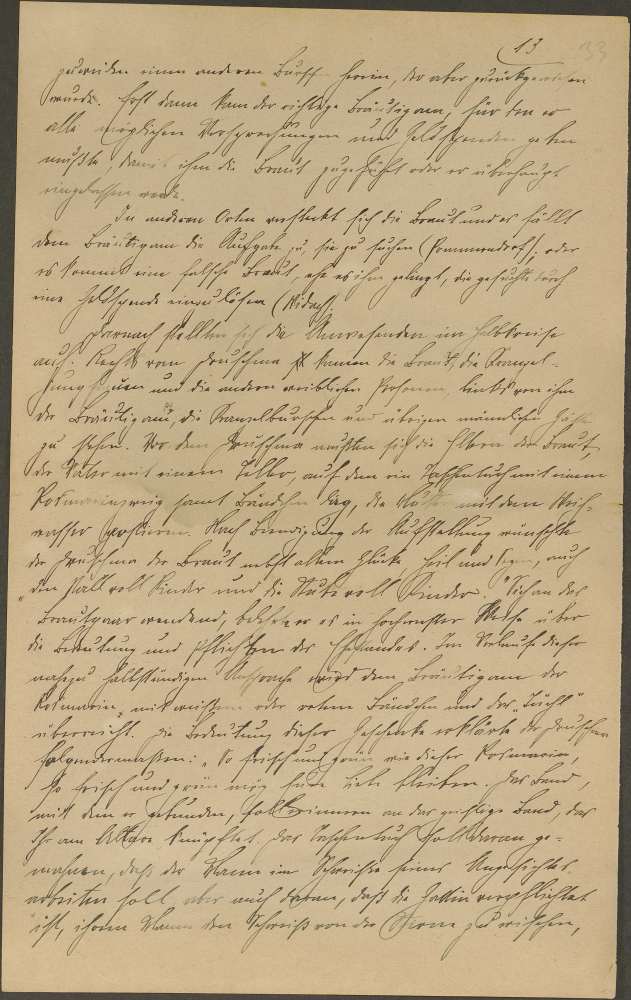 13
33
zuweilen einen anderen Bursch herein, der aber zurückgewiesen
wurde. Erst dann kam der richtige Bräutigam, für den er
alle möglichen Versprechungen und Geldspenden geben
mußte, damit ihm die Braut zugeführt oder er überhaupt
eingelassen werde.
In anderen Orten versteckt sich die Braut und es fällt
dem Bräutigam die Aufgabe zu, sie zu suchen (Pommerndorf); oder
es kommt eine falsche Braut, ehe es ihm gelingt, die gesuchte durch
eine Geldspende einzulösen (Widach).
Darnach stellten sich die Anwesenden im Halbkreise
auf. Rechts vom Druschma kamen die Braut, die Kranzel-
jungfrauen und die andern weiblichen Personen, links von ihm
der Bräutigam, die Kranzelburschen und übrigen männlichen Gäste
zu stehen. Vor dem Druschma mußten sich die Eltern der Braut,
der Vater mit einem Teller, auf dem ein Taschentuch mit einem
Rosmarinzweig samt Bändchen lag, die Mutter mit dem Weih-
wasser postieren. Nach Beendigung der Aufstellung wünschte
der Druschma der Braut nebst allem Glücke, Heil und Segen, auch
„den Stall voll Rinder und die Stube voll Kinder." Sich an das
Brautpaar wendend, belehrte er es in hochernster Weise über
die Bedeutung und Pflichten des Ehestandes. Im Verlaufe dieser
nahezu halbstündigen Ansprache wird dem Bräutigam der
Rosmarin mit weißem oder rotem Bändchen und das „Tüchl"
überreicht. Die Bedeutung dieser Geschenke erklärte der Druschma
folgendermaßen: „So frisch und grün wie dieser Rosmarin,
so frisch und grün mög eure Liebe bleiben. Das Band,
mit dem er gebunden, soll erinnern an das geistige Band, das
Ihr am Altare knüpftet. Das Taschentuch soll daran ge-
mahnen, daß der Mann im Schweiße seines Angesichtes
arbeiten soll, aber auch daran, daß die Gattin verpflichtet
ist, ihrem Manne den Schweiß von der Stirne zu wischen,